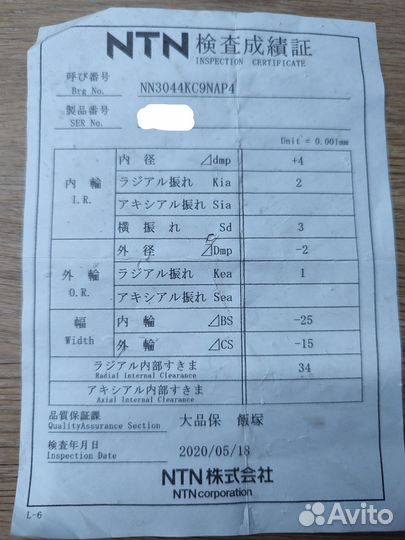 NTN 検査成績証
INSPECTION CERTIFICATE
呼び番号
Brg No. NN3044KC9NAP4
製品番号
SER No.
Unit = 0.001mm
内輪 I.R. 内径 ⊿dmp +4
ラジアル振れ Kia 2
アキシアル振れ Sia
横振れ Sd 3
外輪 O.R. 外径 ⊿Dmp -2
ラジアル振れ Kea 1
アキシアル振れ Sea
幅 Width 内輪 ⊿BS -25
外輪 ⊿CS -15
ラジアル内部すきま 34
Radial Internal Clearance
アキシアル内部すきま
Axial Internal Clearance
品質保証課
QualityAssurance Section 大品保 飯塚
検査年月日
Inspection Date 2020/05/18
NTN株式会社
NTN corporation
L-6
Avito